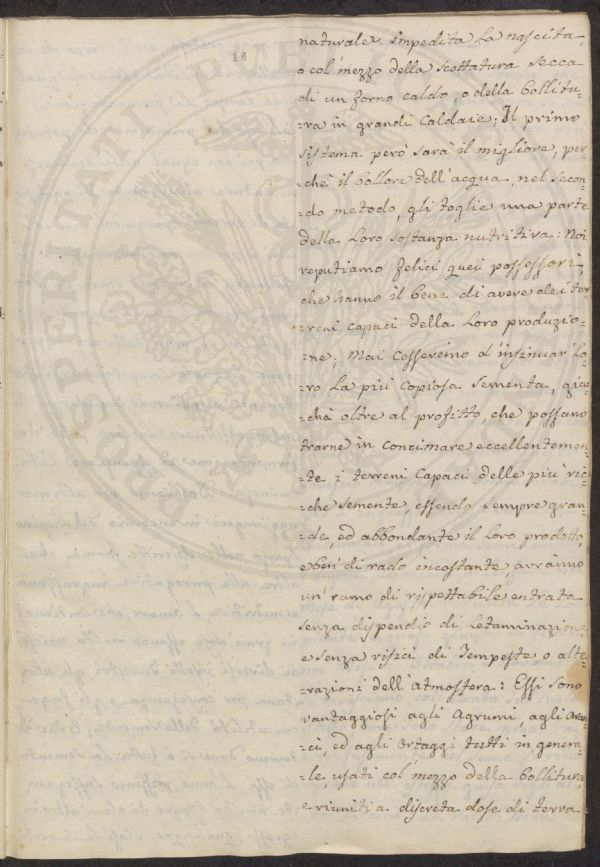 18
naturale impedita la nascita,
o col' mezzo della Scottatura secca
di un forno caldo, o della bollitu-
-ra in grandi Caldaie; Il primo
sistema però sarà il migliore, per-
-chè il bollore dell'acqua, nel secon-
-do metodo, gli toglie una parte
della Loro sostanza nutritiva: Noi
reputiamo felici quei possessori,
che hanno il bene di avere dei ter-
-reni capaci della Loro produzio-
-ne; Mai Cesseremo d'insinuar' Lo-
-ro la più Copiosa Sementa, giac-
-chè oltre al profitto, che possano
trarne in concimare eccellentemen-
-te i terreni Capaci delle più ric-
-che semente, essendo sempre gran-
-de, ed abbondante il Loro prodotto,
e ben' di rado incostante, avranno
un' ramo di rispettabile entrata
senza dispendio di
e senza risici di Tempeste o alte-
-razioni dell'atmosfera: Essi sono
vantaggiosi agli Agrumi, agli
-ci, ed agli Ortaggi tutti in genera-
-le, usati col' mezzo della bollitura,
e riuniti a discreta dose di terra
PROSPERITATI PUB